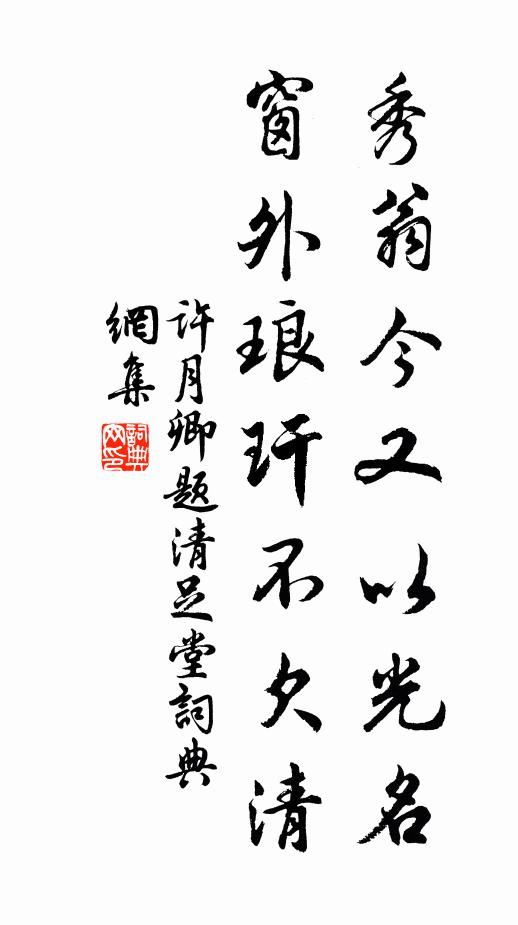 秀翁今又以光名
窗外琅玕不欠清
許月卿題清足堂詞典
網集
詞典網印